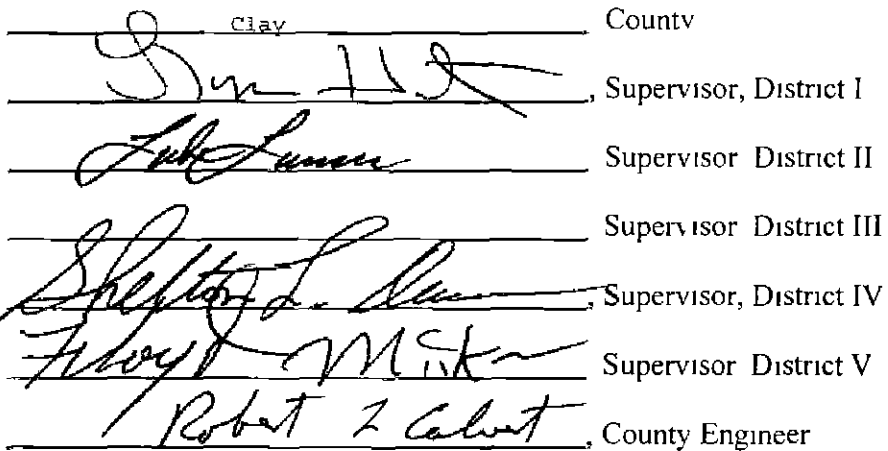 Clay County
, Supervisor, District I
Luke Supervisor District II
Supervisor District III
Shelton L. , Supervisor, District IV
Floyd Supervisor District V
Robert L Calvert, County Engineer